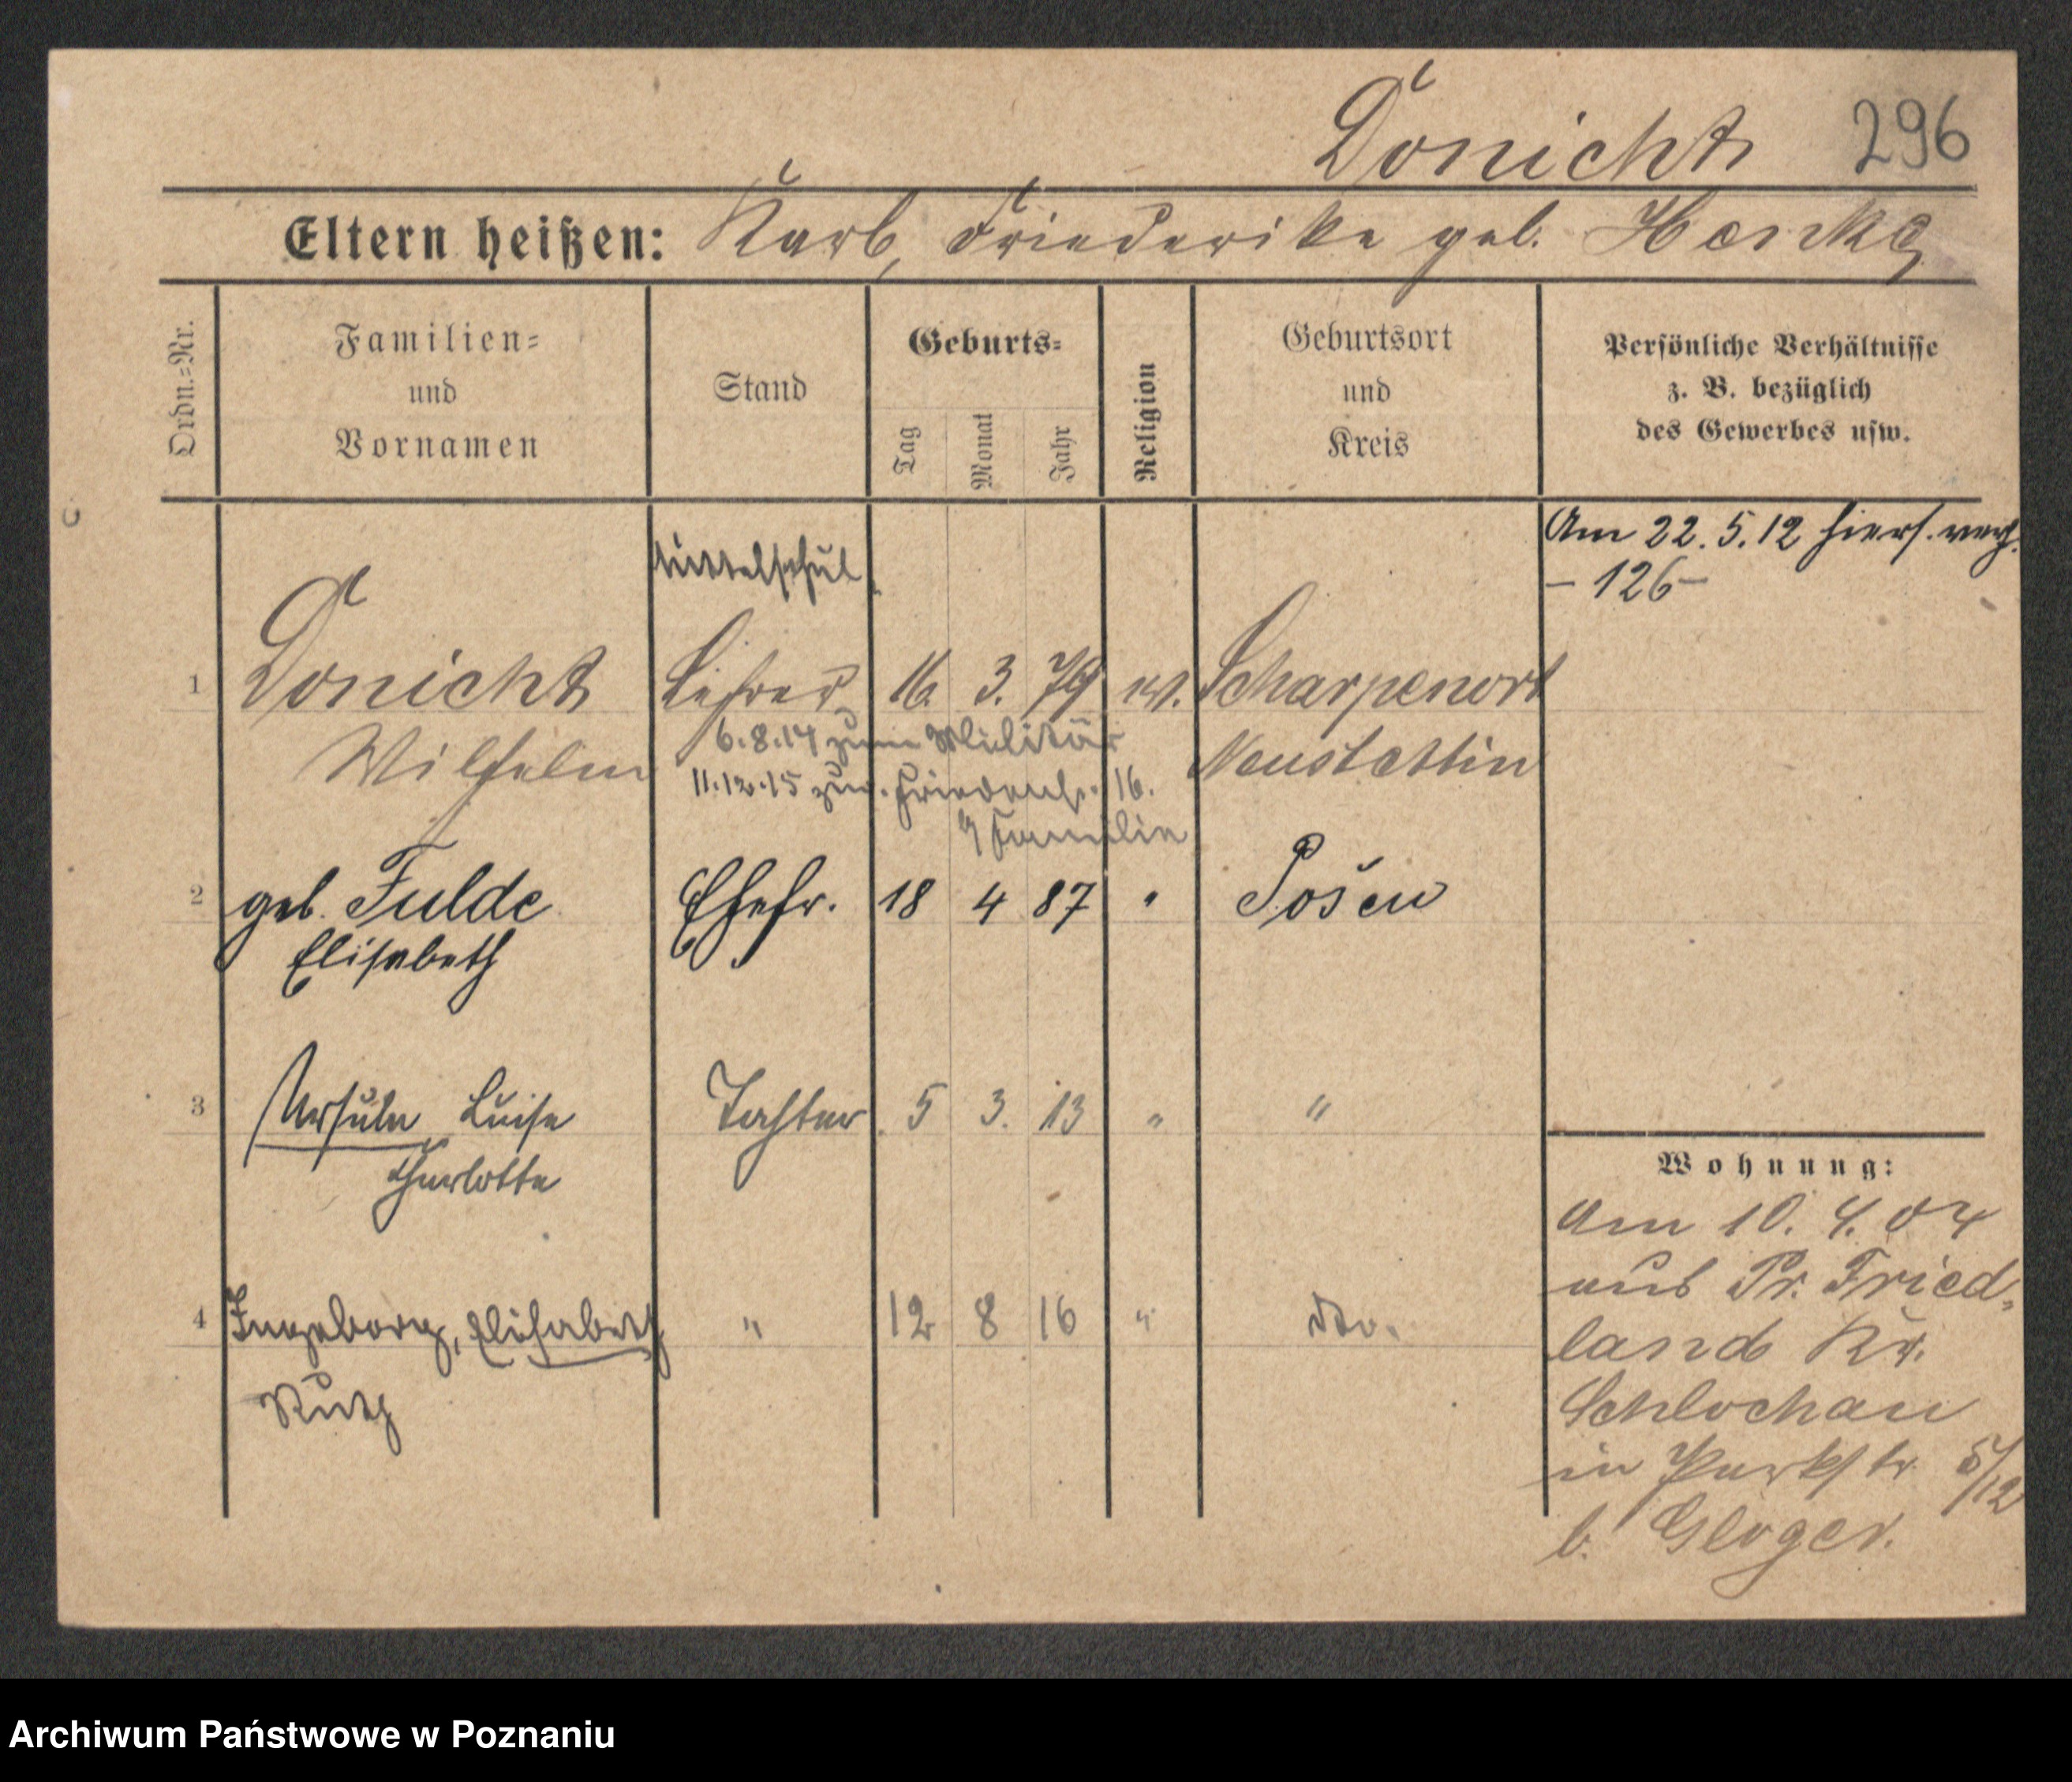 Donicht 296
Eltern heißen: Karl, Friederike geb. Henke
Ordn.-Nr.
Familien-
und
Vornamen
Stand
Geburts-
Tag
Monat
Jahr
Religion
Geburtsort
und
Kreis
Persönliche Verhältnisse
z. B. bezüglich
des Gewerbes usw.
Am 22.5.12 hiers. verh.
- 126 -
Mittelschul
1 Donicht Lehrer 16. 3. 79 ev. Scharpenort
6.8.14 zum Militär
Wilhelm Neustettin
11.12.15 zur. Friedenst. 16.
Familie
2 geb. Fulde Ehefr. 18 4 87 " Posen
Elisabeth
3 Ursula Luise Tochter 5 3. 13 " "
Charlotte
4 Ingeborg, Elisabeth " 12 8 16 " do.
Ruth
Wohnung:
Am 10. 4. 04
aus Pr. Fried-
land Kr.
Schlochau
in Parkstr. 5/12
b. Gloger.
Archiwum Państwowe w Poznaniu